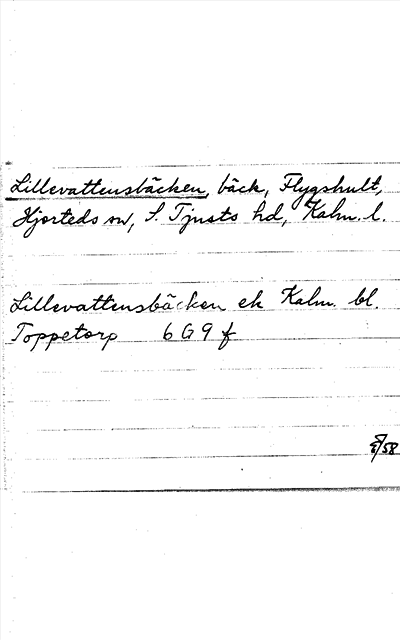 Lillevattensbäcken, bäck, Flygshult,
Hjorteds sn, S. Tjusts hd, Kalm. l.
Lillevattensbäcken ek Kalm. bl.
Toppetorp 6 G 9 f
/58